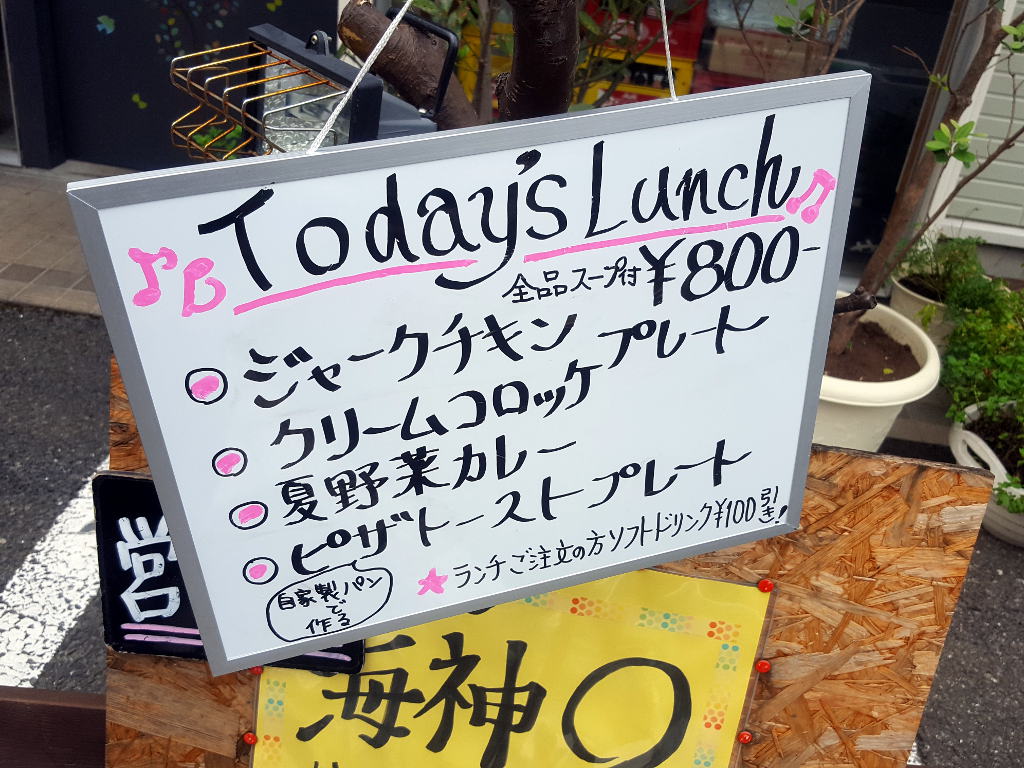 Today's Lunch
全品スープ付 ¥800-
ジャークチキンプレート
クリームコロッケ
夏野菜カレー
ピザトーストプレート
自家製パン
で作る
ランチご注文の方ソフトドリンク¥100引き!
営
海神〇